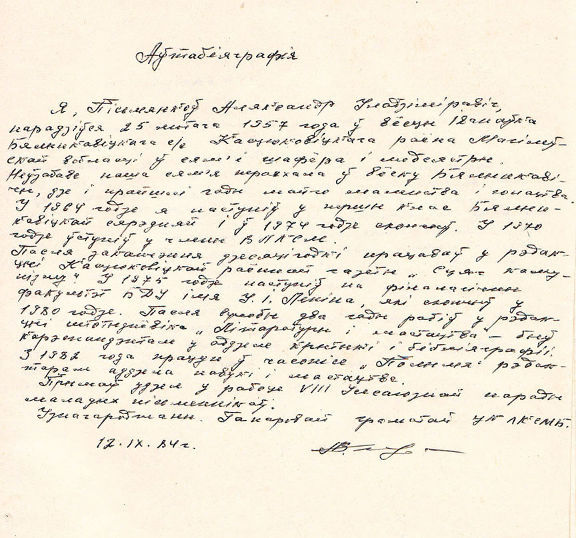 Аўтабіяграфія
Я, Пісьмянкоў Аляксандр Уладзіміравіч,
нарадзіўся 25 лютага 1957 года ў вёсцы Іванаўка
Бялынкавіцкага с/с Касцюковіцкага раёна Магілёў-
скай вобласці ў сям'і шафёра і медсястры.
Неўзабаве наша сям'я пераехала ў вёску Бялынкаві-
чы, дзе і прайшлі гады майго маленства і юнацтва.
У 1964 годзе я паступіў у першы клас Бялын-
кавіцкай сярэдняй і ў 1974 годзе скончыў. У 1970
годзе ўступіў у члены ВЛКСМ.
Пасля заканчэння дзесяцігодкі працаваў у рэдак-
цыі Касцюковіцкай раённай газеты „Сцяг каму-
нізму". У 1975 годзе паступіў на філалагічны
факультэт БДУ імя У. І. Леніна, які скончыў у
1980 годзе. Пасля службы два гады рабіў у рэдак-
цыі штотыднёвіка „Літаратура і мастацтва – быў
карэспандэнтам у аддзеле крытыкі і бібліяграфіі.
З 1982 года працую ў часопісе „Полымя" рэдак-
тарам аддзела навукі і мастацтва.
Прымаў удзел у рабоце VIII Усесаюзнай нарады
маладых пісьменнікаў.
Узнагароджаны Ганаровай граматай ЦК ЛКСМБ.
12.IX.84 г.